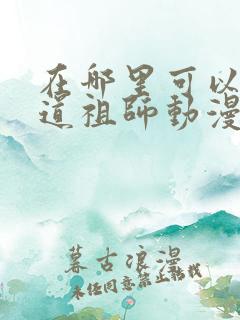 在哪里可以
道祖師動漫
暮古浪漫
未经同意禁止转载